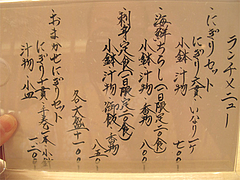 ランチメニュー
・にぎりセット
にぎり七貫・いなり一ケ
小鉢 汁物 八〇〇
・海鮮ちらし(一日限定二〇食)
小鉢 汁物 香物 八〇〇
・刺身定食(一日限定二〇食)
小鉢 汁物 御飯 香物 八五〇
各大盛 十一〇〇
・おまかせにぎりセット
小鉢
汁物・小皿